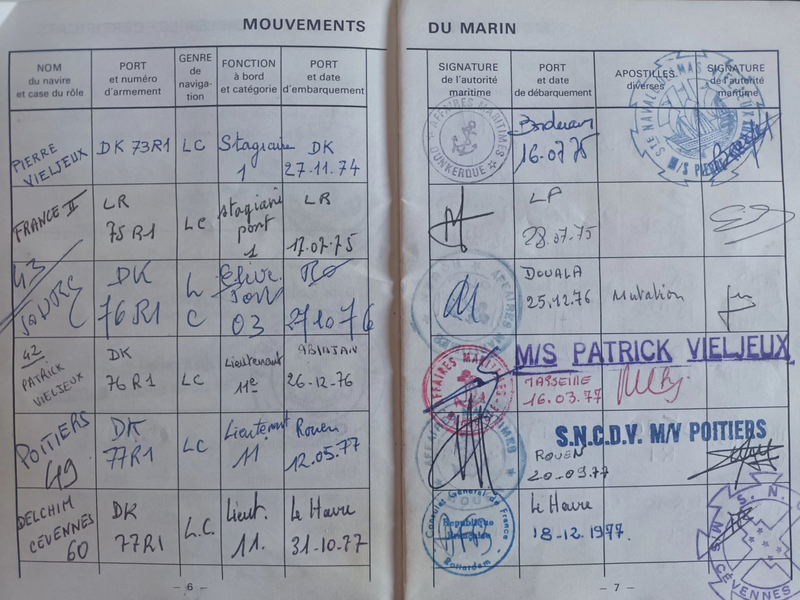 MOUVEMENTS
NOM
du navire
et case du rôle
PORT
et numéro
d'armement
GENRE
de
naviga-
tion
FONCTION
à bord
et catégorie
PORT
et date
d'embarquement
PIERRE
VIELJEUX
DK 73R1
LC
Stagiaire
1
DK
27.11.74
FRANCE II
LR
75 R1
LC
stagiaire
pont
1
LR
17.07.75
43
DK
76R1
L
C
03
27 10 76
42
PATRICK
VIELJEUX
DK
76 R1
LC
Lieutenant
11e
ABIDJAN
26-12-76
POITIERS
49
DK
77R1
LC
Lieutenant
11
Rouen
12.05.77
DELCHIM
CÉVENNES
60
DK
77R1
L.C.
Lieut.
11.
Le Havre
31-10-77
– 6 –
DU MARIN
SIGNATURE
de l'autorité
maritime
PORT et
date de
débarquement
APOSTILLES
diverses
SIGNATURE
de l'autorité
maritime
AFFAIRES MARITIMES
DUNKERQUE
Bordeaux
16.07.75
LP
28.07.75
DOUALA
25.12.76
Mutation
M/S PATRICK VIELJEUX
AFFAIRES MARITIMES
MARSEILLE
16.03.77
S.N.C.D.V. M/V POITIERS
ROUEN
20-09-77
Consulat Général de France
République
Française
Rotterdam
Le Havre
18-12.1977.
M/S CÉVENNES
– 7 –